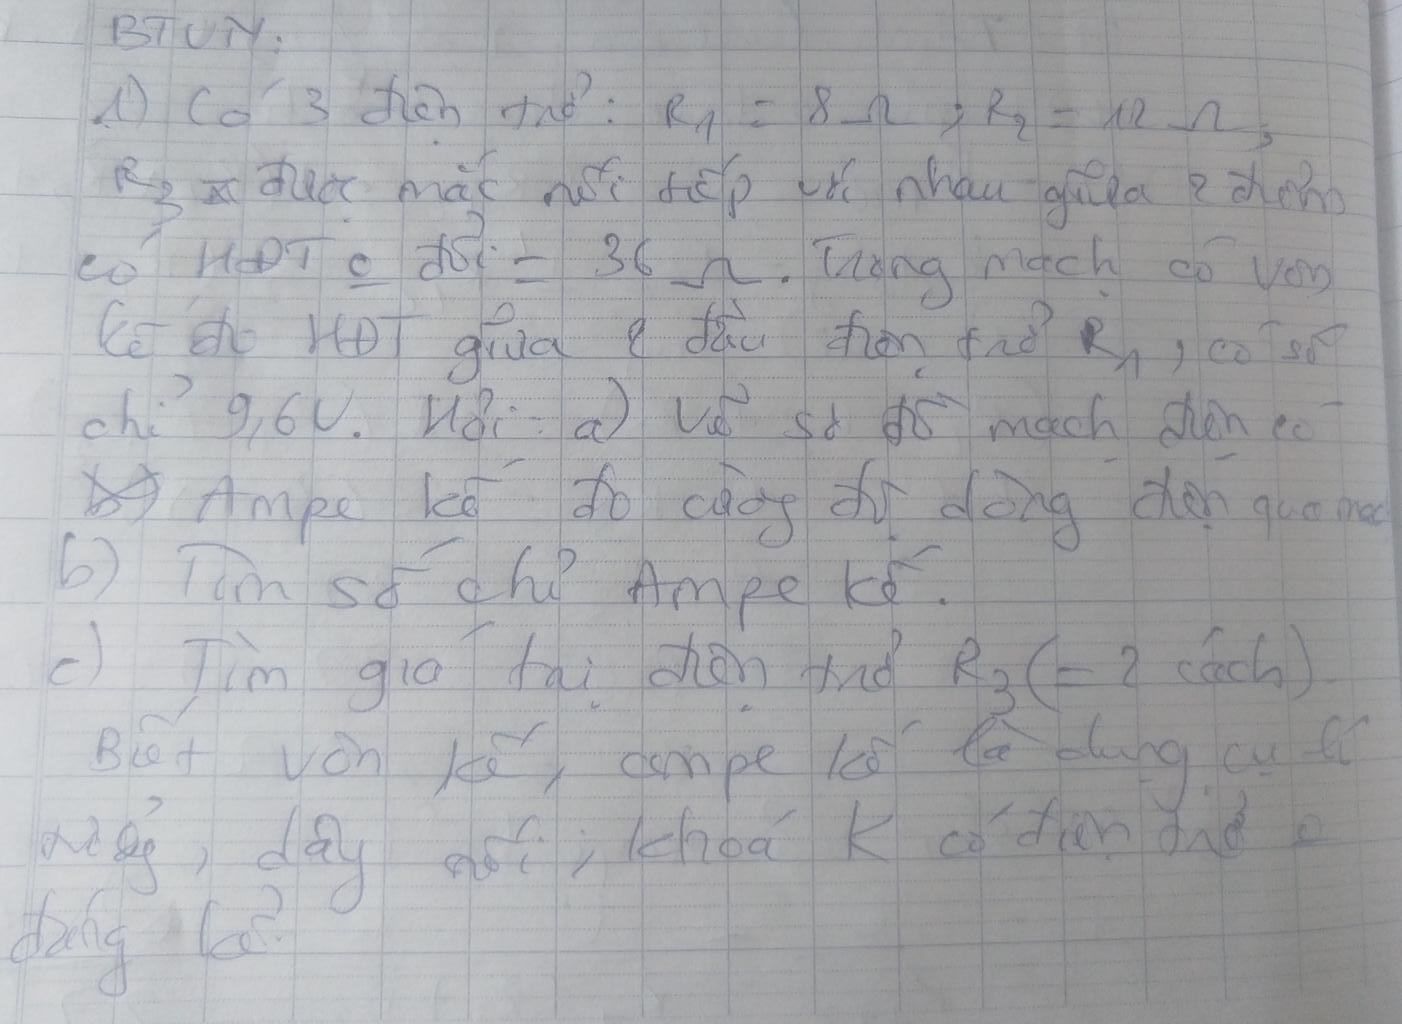 BTVN:
1) Có 3 điện trở: R1 = 8 Ω; R2 = 12 Ω,
R3 được mắc nối tiếp với nhau giữa 2 điểm
có HĐT o đổi = 36 Ω. Trong mạch có Vôn
kế đo HĐT giữa 2 đầu điện trở R1, có số
chỉ 9,6V. Hỏi: a) Vẽ sơ đồ mạch điện có
Ampe kế đo cường độ dòng điện qua mạc
b) Tìm số chỉ Ampe kế.
c) Tìm giá trị điện trở R3 (= 2 cách)
Biết vôn kế, ampe kế là dụng cụ lí
tưởng, dây nối, khoá K có điện trở o
đáng kể.